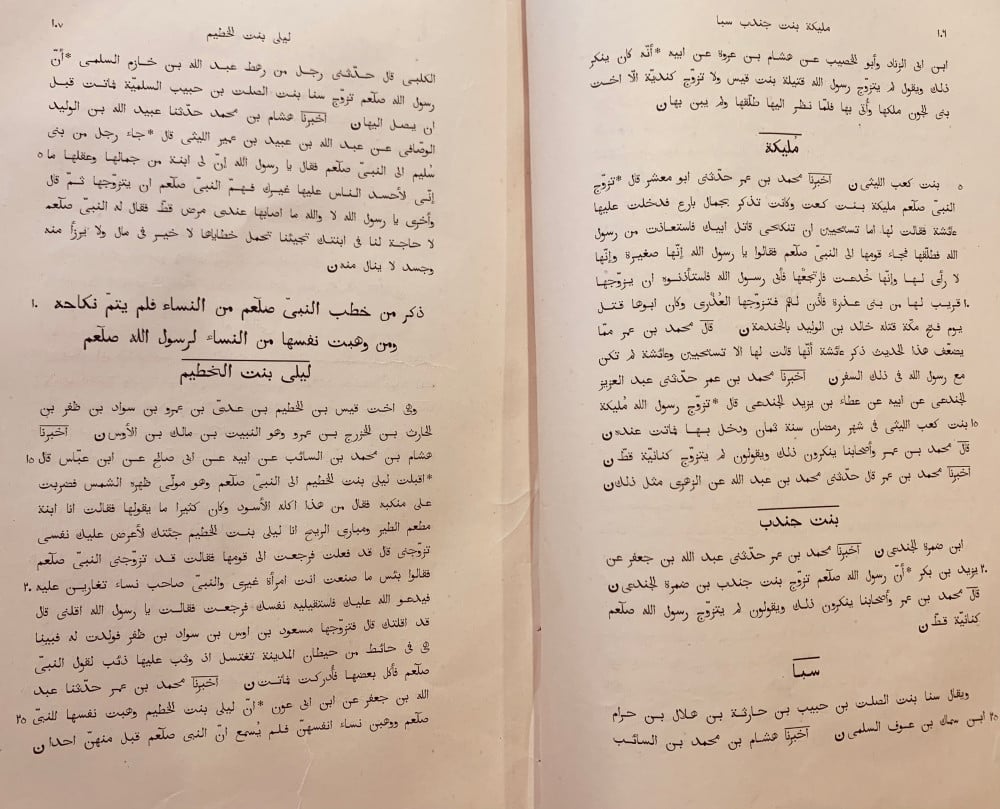 ١٠٦
مليكة بنت جندب سبا
ابن ابى الزناد وأبو الخصيب عن هشام بن عروة عن ابيه *انّه كان ينكر
ذلك ويقول لم يتزوّج رسول الله قتيلة بنت قيس ولا تزوّج كنديّة الّا اخت
بنى الجون ملكها وأتى بها فلمّا نظر اليها طلّقها ولم يبن بها ن
مُليكة
٥ بنت كعب الليثى ن اخبرنا محمد بن عمر حدّثنى ابو معشر قال *تزوّج
النبىّ صلّعم مليكة بنت كعب وكانت تذكر بجمال بارع فدخلت عليها
عائشة فقالت لها اما تستحيين ان تنكحى قاتل ابيك فاستعاذت من رسول
الله فطلّقها فجاء قومها الى النبىّ صلّعم فقالوا يا رسول الله انّها صغيرة وانّها
لا رأى لها وانّها خُدعت فارتجعْها فأبى رسول الله فاستأذنوه ان يزوّجها
١٠ قريب لها من بنى عذرة فأذن لهم فتزوّجها العُذْرى وكان ابوها قتل
يوم فتح مكّة قتله خالد بن الوليد بالخندمة ن قال محمد بن عمر ممّا
يضعّف هذا الحديث ذكر عائشة أنّها قالت لها الا تستحيين وعائشة لم تكن
مع رسول الله فى ذلك السفر ن اخبرنا محمد بن عمر حدّثنى عبد العزيز
الجندعى عن ابيه عن عطاء بن يزيد الجندعى قال *تزوّج رسول الله مُليكة
١٥ بنت كعب الليثى فى شهر رمضان سنة ثمان ودخل بها فماتت عنده ن
قال محمد بن عمر وأصحابنا ينكرون ذلك ويقولون لم يتزوّج كنانيّة قطّ ن
اخبرنا محمد بن عمر قال حدّثنى محمد بن عبد الله عن الزهرى مثل ذلك ن
بنت جندب
ابن ضمرة الجندعى ن اخبرنا محمد بن عمر حدّثنى عبد الله بن جعفر عن
٢٠ يزيد بن بكر *أنّ رسول الله صلّعم تزوّج بنت جندب بن ضمرة الجندعى ن
قال محمد بن عمر وأصحابنا ينكرون ذلك ويقولون لم يتزوّج رسول الله صلّعم
كنانيّة قطّ ن
سبا
ويقال سنا بنت الصلت بن حبيب بن حارثة بن هلال بن حرام
٢٥ ابن سمك بن عوف السلمى ن اخبرنا هشام بن محمد بن السائب
ليلى بنت الخطيم
١٠٧
الكلبى قال حدّثنى رجل من رهط عبد الله بن خازم السلمى *أنّ
رسول الله صلّعم تزوّج سنا بنت الصلت بن حبيب السلميّة فماتت قبل
ان يصل اليها ن اخبرنا هشام بن محمد حدّثنا عبيد الله بن الوليد
الوصّافى عن عبد الله بن عبيد بن عمير الليثى قال *جاء رجل من بنى
سُليم الى النبىّ صلّعم فقال يا رسول الله انّ لى ابنة من جمالها وعقلها ما ٥
إنّى لأحسد الناس عليها غيرك فهمّ النبىّ صلّعم ان يتزوّجها ثمّ قال
وأخرى يا رسول الله لا والله ما اصابها عندى مرض قطّ فقال له النبىّ صلّعم
لا حاجة لنا فى ابنتك تجيئنا تحمل خطاياها لا خير فى مال ولا يرزأ منه
وجسد لا ينال منه ن
ذكر من خطب النبىّ صلّعم من النساء فلم يتمّ نكاحه ١٠
ومن وهبت نفسها من النساء لرسول الله صلّعم
ليلى بنت الخطيم
وهى اخت قيس بن الخطيم بن عدىّ بن عمرو بن سواد بن ظفر بن
الحارث بن الخزرج بن عمرو وهو النبيت بن مالك بن الأوس ن اخبرنا
هشام بن محمد بن السائب عن ابيه عن ابى صالح عن ابن عبّاس قال ١٥
*اقبلت ليلى بنت الخطيم الى النبىّ صلّعم وهو مولّى ظهره الشمس فضربت
على منكبه فقال من هذا اكله الأسود وكان كثيرا ما يقولها فقالت انا ابنة
مطعم الطير ومبارى الريح انا ليلى بنت الخطيم جئتك لأعرض عليك نفسى
تزوّجنى قال قد فعلت فرجعت الى قومها فقالت قد تزوّجنى النبىّ صلّعم
فقالوا بئس ما صنعت انت امرأة غيرى والنبىّ صاحب نساء تغارين عليه ٢٠
فيدعو الله عليك فاستقيليه نفسك فرجعت فقالت يا رسول الله اقلنى قال
قد اقلتك قال فتزوّجها مسعود بن اوس بن سواد بن ظفر فولدت له فبينا
هى فى حائط من حيطان المدينة تغتسل اذ وثب عليها ذئب لقول النبىّ
صلّعم فأكل بعضها فأدركت فماتت ن اخبرنا محمد بن عمر حدّثنا عبد
الله بن جعفر عن ابن ابى عون *انّ ليلى بنت الخطيم وهبت نفسها للنبىّ ٢٥
صلّعم ووهبن نساء انفسهنّ فلم يُسمع انّ النبى صلّعم قبل منهنّ احدا ن